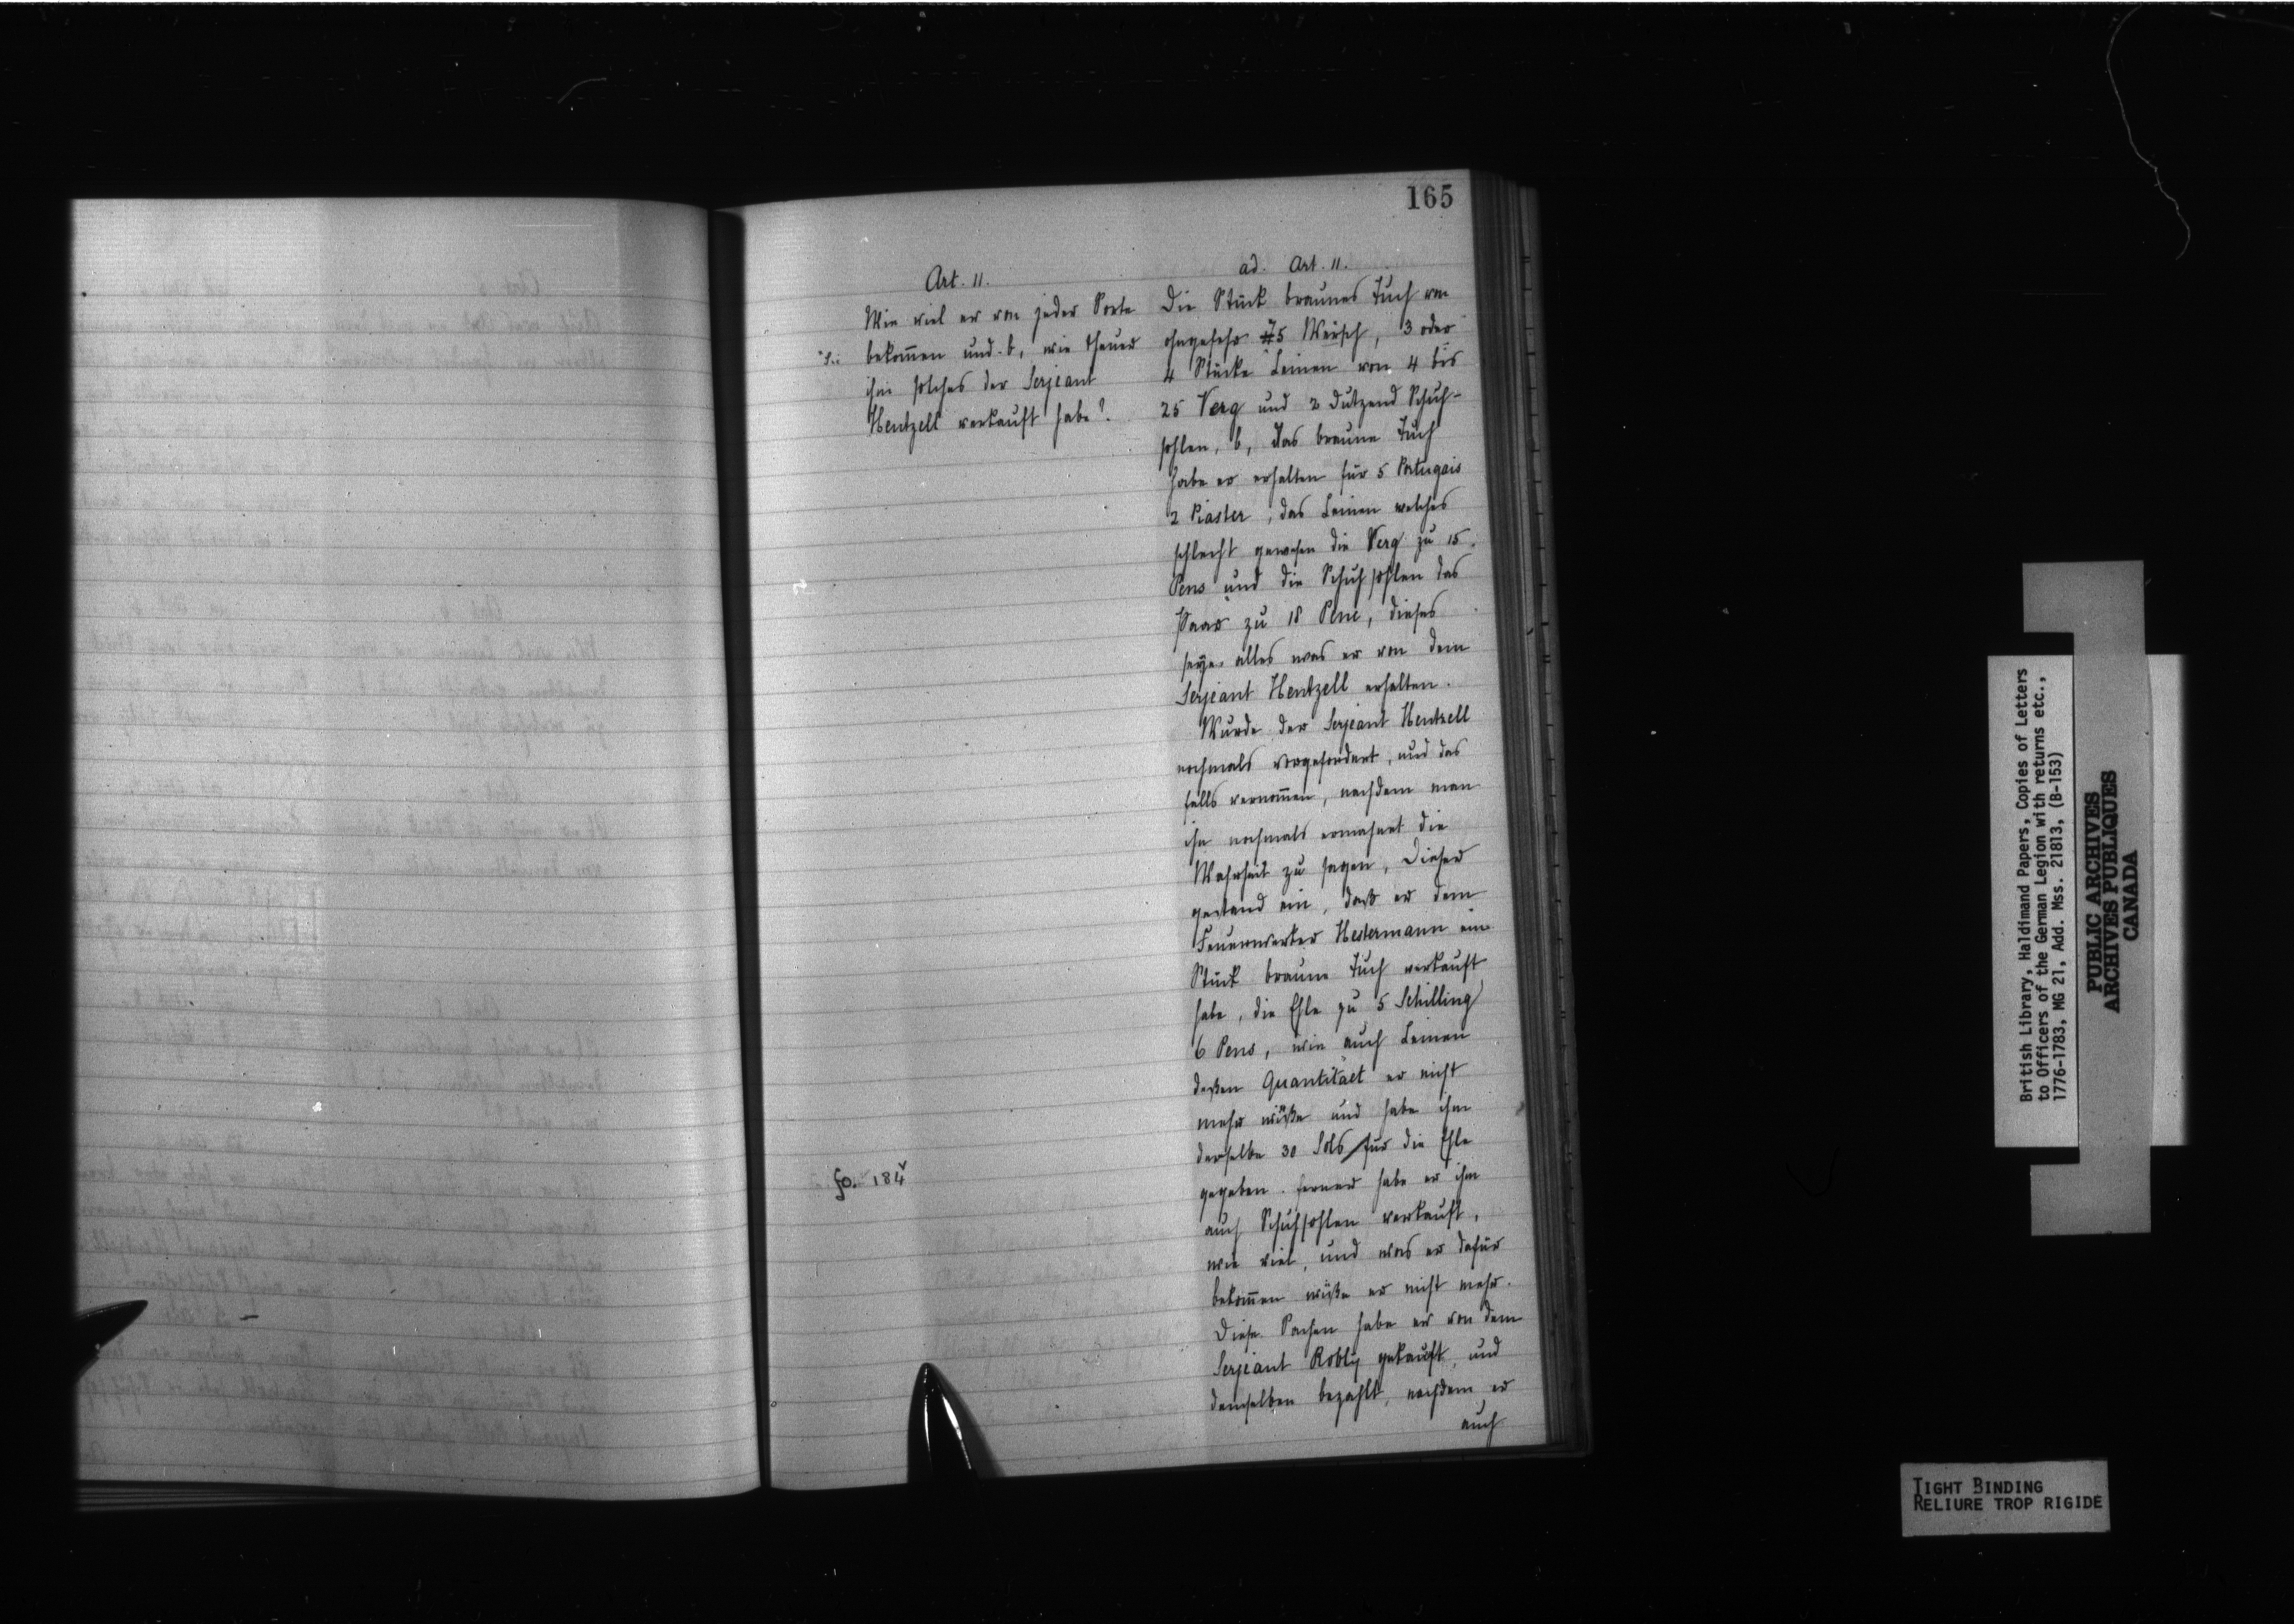 165
Art. 11.
Wie viel er von jeder Sorte
bekom̄en und b, wie theuer
ihm solches der Serjeant
Hentzell verkauft habe?
fo. 184v
ad. Art. 11.
Die Stück braunes Tuch von
ohngefehr 75 , 3 oder
4 Stücke Leinen von 4 bis
25 Verg und 2 Dutzend Schuh-
sohlen, b, das braune Tuch
habe er erhalten für 5 Portugais
2 Piaster, das Leinen welches
schlecht gewesen die Verg zu 15
Pens und die Schuhsohlen das
Paar zu 18 Pens, dieses
seye alles was er von dem
Serjeant Hentzell erhalten.
Wurde der Serjeant Hentzell
nochmals vorgefordert, und des
falls vernom̄en, nachdem man
ihn nochmals ermahnet die
Wahrheit zu sagen, Dieser
gestand ein, daß er dem
Feuerwerker Hestermann ein
Stück braune Tuch verkauft
habe, die Ehle zu 5 Schilling
6 Pens, wie auch Leinen
deßen Quantitaet er nicht
mehr wüßte und habe ihm
derselbe 30 Sols für die Ehle
gegeben. ferner habe er ihm
auch Schuhsohlen verkauft,
wie viel, und was er dafür
bekom̄en wüßte er nicht mehr.
Diese Sachen habe er von dem
Serjeant Robly gekauft, und
demselben bezahlt, nachdem er
auch
British Library, Haldimand Papers, Copies of Letters
to Officers of the German Legion with returns etc.,
1776-1783, MG 21, Add. Mss. 21813, (B-153)
PUBLIC ARCHIVES
ARCHIVES PUBLIQUES
CANADA
TIGHT BINDING
RELIURE TROP RIGIDE